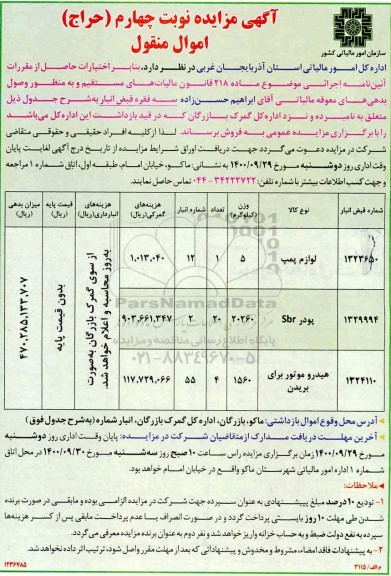 آگهی مزایده نوبت چهارم (حراج)
اموال منقول
سازمان امور مالیاتی کشور
اداره کل امور مالیاتی استان آذربایجان غربی در نظر دارد، بنابر اختیارات حاصل از مقررات
آئین‌نامه اجرائی موضوع ماده ۲۱۸ قانون مالیات‌های مستقیم و به منظور وصول
بدهی‌های معوقه مالیاتی آقای ابراهیم حسن‌زاده سه فقره قبض انبار به شرح جدول ذیل
متعلق به نامبرده و نزد اداره کل گمرک بازرگان که در قید بازداشت این اداره کل می‌باشد
را با برگزاری مزایده عمومی به فروش برساند. لذا از کلیه افراد حقیقی و حقوقی متقاضی
شرکت در مزایده دعوت می‌گردد جهت دریافت اوراق شرایط مزایده از تاریخ درج آگهی لغایت پایان
وقت اداری روز دوشنبه مورخ ۱۴۰۰/۰۹/۲۹ به نشانی: ماکو، خیابان امام، طبقه اول، اتاق شماره ۱ مراجعه
و جهت کسب اطلاعات بیشتر با شماره تلفن: ۳۴۲۲۳۷۲۲-۰۴۴ تماس حاصل نمایند.
شماره قبض انبار | نوع کالا | وزن (کیلوگرم) | تعداد | شماره انبار | هزینه‌های گمرکی (ریال) | هزینه‌های انبارداری (ریال) | قیمت پایه (ریال) | میزان بدهی (ریال)
۱۳۲۳۶۵۰ | لوازم پمپ | ۵ | ۱ | ۱۲ | ۱,۰۱۳,۰۴۰
۱۳۲۹۹۹۴ | پودر Sbr | ۲۰۲۶۰ | ۲۰ | ۲ | ۹۰۳,۶۶۱,۳۴۷
۱۳۲۴۱۱۰ | هیدرو موتور برای بریدن | ۱۵۶۰ | ۴ | ۵۵ | ۱۱۷,۷۲۹,۰۶۶
از سوی گمرک بازرگان به‌صورت به‌روز محاسبه و اعلام خواهد شد.
بدون قیمت پایه
۴۷۰,۲۸۵,۱۳۳,۷۰۷
ParsNamadData
پایگاه اطلاع رسانی مناقصه و مزایده
۰۲۱-۸۸۳۴۹۶۷۰-۵
آدرس محل وقوع اموال بازداشتی: ماکو، بازرگان، اداره کل گمرک بازرگان، انبار شماره (به شرح جدول فوق)
آخرین مهلت دریافت مدارک از متقاضیان شرکت در مزایده: پایان وقت اداری روز دوشنبه
مورخ ۱۴۰۰/۰۹/۲۹ زمان برگزاری مزایده راس ساعت ۱۰ صبح روز سه‌شنبه مورخ ۱۴۰۰/۰۹/۳۰ در محل اتاق
شماره ۱ اداره امور مالیاتی شهرستان ماکو واقع در خیابان امام خواهد بود.
ملاحظات:
۱- تودیع ۱۰ درصد مبلغ پیشنهادی به عنوان سپرده جهت شرکت در مزایده الزامی بوده و مابقی در صورت برنده
شدن طی مهلت ۱۰ روز بایستی پرداخت گردد و در صورت انصراف یا عدم پرداخت مابقی پس از کسر هزینه‌ها
سپرده به نفع دولت ضبط و به حساب خزانه واریز خواهد شد و نفر دوم به عنوان برنده مزایده معرفی می‌گردد.
۲- به پیشنهادات فاقد امضاء، مشروط و مخدوش و پیشنهاداتی که بعد از مهلت مقرر واصل شود، ترتیب اثر داده نخواهد شد.
۱۲۳۶۷۸۵
م الف/ ۳۱۱۵